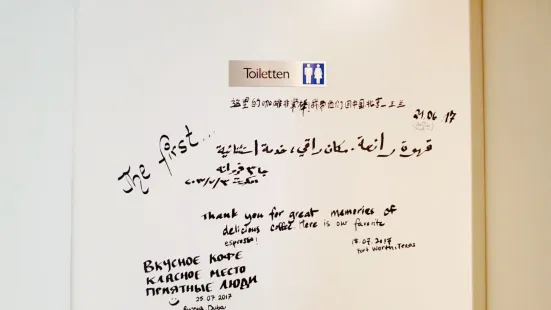 Toiletten
这里的咖啡非常棒
21.06.17
The first...
قهوة رائعة. مكان راقي، خدمة استثنائية
Thank you for great memories of
delicious coffee. Here is our favorite
espresso!
13.07.2017
Fort Worth, Texas
ВКУСНОЕ КОФЕ
КЛАСНОЕ МЕСТО
ПРИЯТНЫЕ ЛЮДИ
25.07.2017